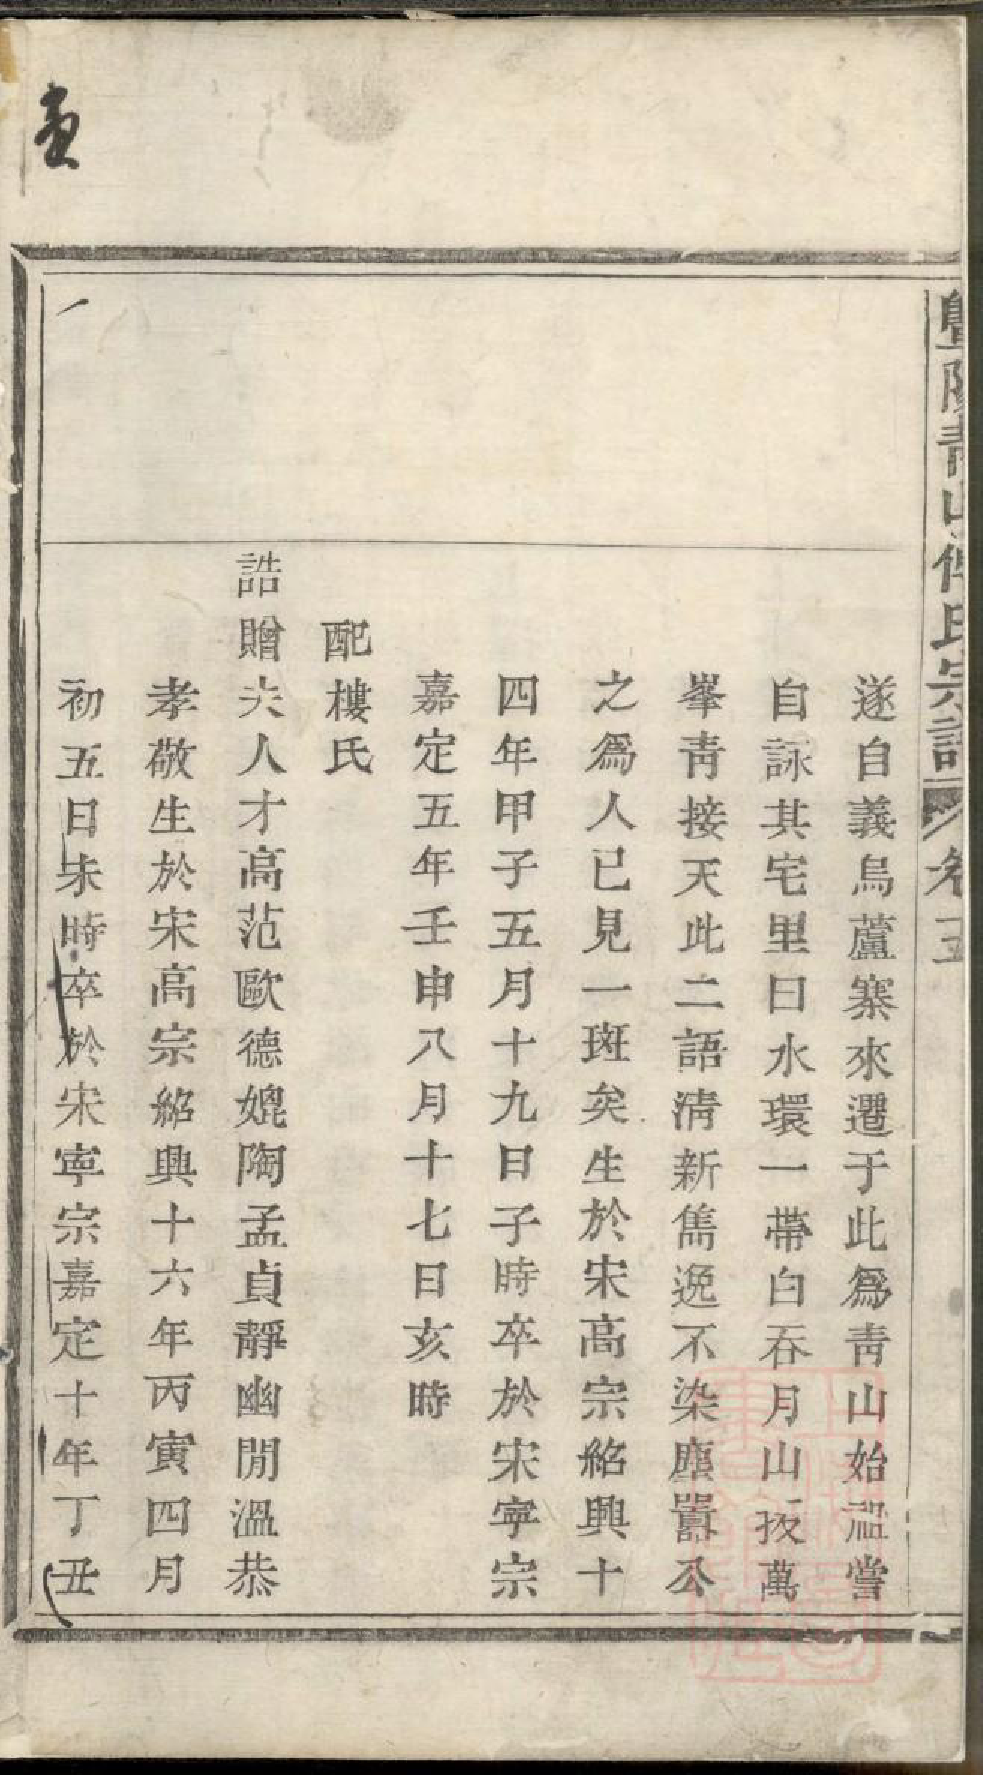 暨陽青山傅氏宗譜 卷五
遂自義烏蘆寨來遷于此爲靑山始祖嘗
自詠其宅里曰水環一帶白呑月山拔萬
峯靑接天此二語淸新雋逸不染塵囂公
之爲人已見一斑矣生於宋高宗紹興十
四年甲子五月十九日子時卒於宋寧宗
嘉定五年壬申八月十七日亥時
配樓氏
誥贈夫人才高范歐德媲陶孟貞靜幽閒溫恭
孝敬生於宋高宗紹興十六年丙寅四月
初五日未時卒於宋寧宗嘉定十年丁丑